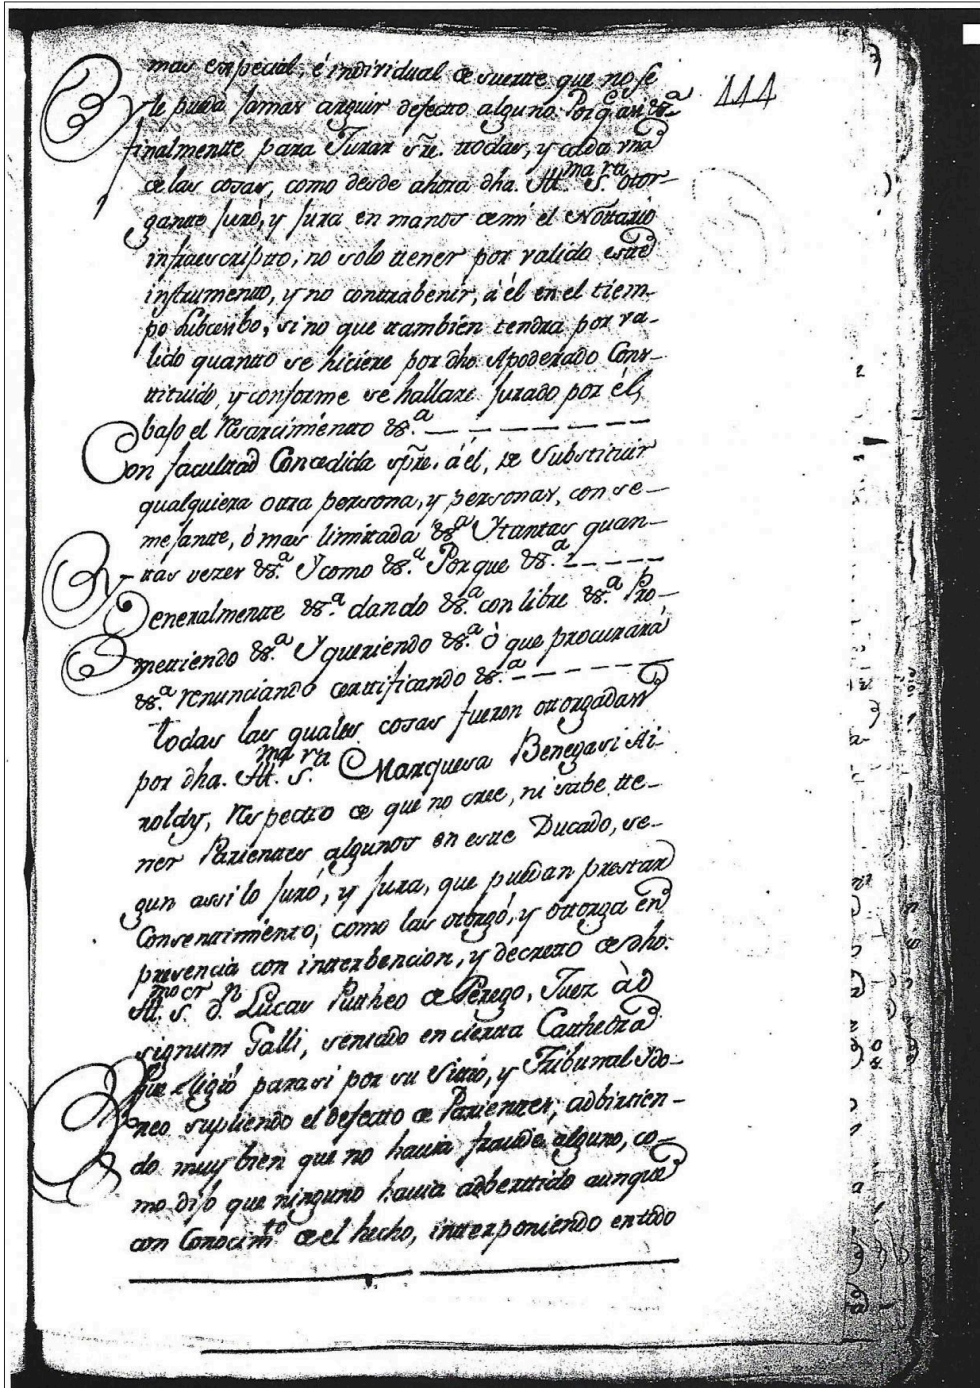 mas especial, é individual de suerte que no se
le pueda jamas arguir defecto alguno. Porq̃ asi &.ª
finalmente para Jurar sre. todas, y cada vna
de las cosas, como desde ahora dha. Ill.ma S.ra otor-
gante juró, y jura en manos de mi el Nottario
infraescripto, no solo tener por valido este
instrumento, y no contrabenir, á él en el tiem-
po Subcesibo, sino que tambien tendra por va-
lido quanto se hiciere por dho. Apoderado Cons-
tituido, y conforme se hallare jurado por él,
bajo el Resarcimiento &.ª
Con facultad Concedida spre. á él, de Substituir
qualquiera otra persona, y personas, con se-
mejante, ó mas limitada &.ª Y tantas quan-
tas vezes &.ª Y como &.ª Porque &.ª
Generalmente &.ª dando &.ª con libre &.ª Pro-
metiendo &.ª Y queriendo &.ª Ò que procurará
&.ª renunciando certificando &.ª
todas las quales cosas fueron otorgadas
por dha. Ill.ma S.ra Marquesa Benegasi Ai-
roldy, Respecto de que no cree, ni sabe te-
ner Parientes algunos en este Ducado, se-
gun assi lo juró, y jura, que puedan prestar
Consentimiento, como las otorgó, y ottorga en
presencia con interbencion, y decreto de dho.
Ill.mo S.or D.n Lucas Putheo de Perego, Juez àd
signum Galli, sentado en cierta Cathedra
que eligió para si por su Sitio, y Tribunal Ido-
neo supliendo el defecto de Parientes, adbirtien-
do muy bien que no hauia fraude alguno, co-
mo dijo que ninguno hauia adbertido aunque
con Conocim.to de el hecho, interponiendo en todo
111